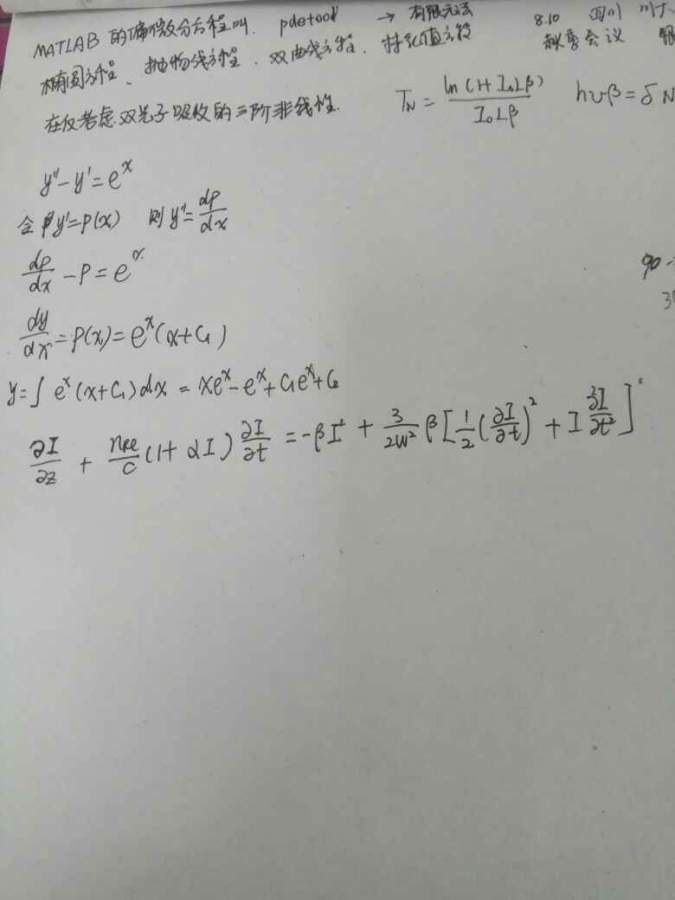 MATLAB 的偏微分方程叫 pdetool → 有限元法
8.10 四川 川大
椭圆方程、抛物线方程、双曲线方程、特征值方程
会议
在仅考虑双光子吸收的三阶非线性.
T_N = ln(1+I₀Lβ) / I₀Lβ  hυβ = δN
y''-y'=eˣ
令 y'=P(x) 则 y''=dp/dx
dp/dx - P = eˣ
90
dy/dx = P(x) = eˣ(x+C₁)
y=∫ eˣ(x+C₁)dx = xeˣ-eˣ+C₁eˣ+C₂
∂I/∂z + n/c (1+αI) ∂I/∂t = -βI² + 3/2w² β[1/2(∂I/∂t)² + I ∂²I/∂t²]